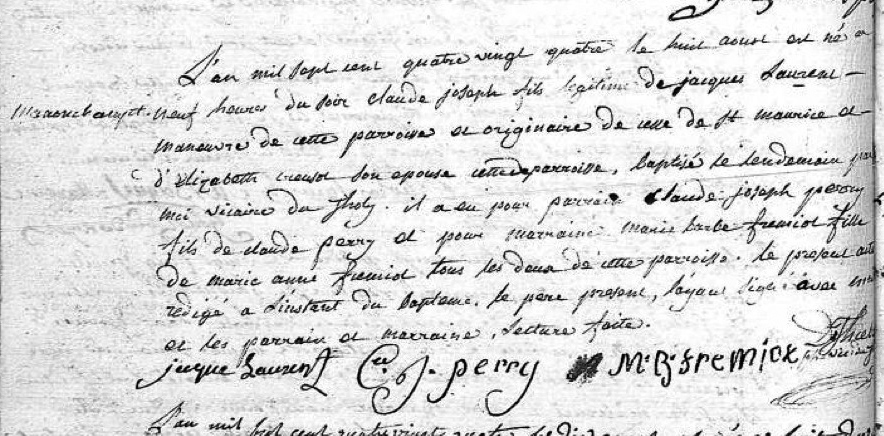 L'an mil sept cent quatre vingt quatre le huit aoust est né a
neuf heures du soir claude joseph fils légitime de jacques Laurent
manœuvre de cette parroisse et originaire de celle de St maurice et
d'Elizabeth creusot son epouse cettedeparroisse, baptisé le lendemain par
moi vicaire du Tholy. il a eu pour parrain claude joseph perry
fils de claude perry et pour marraine marie barbe fremiot fille
de marie anne fremiot tous les deux de cette parroisse. le present acte
redigé a l'instant du baptême, le pere present, l'ayant signé avec moi
et les parrain et marraine, lecture faite.
jacque Laurent C. J. perry M. B. fremiot
L'an mil sept cent quatre vingt quatre le